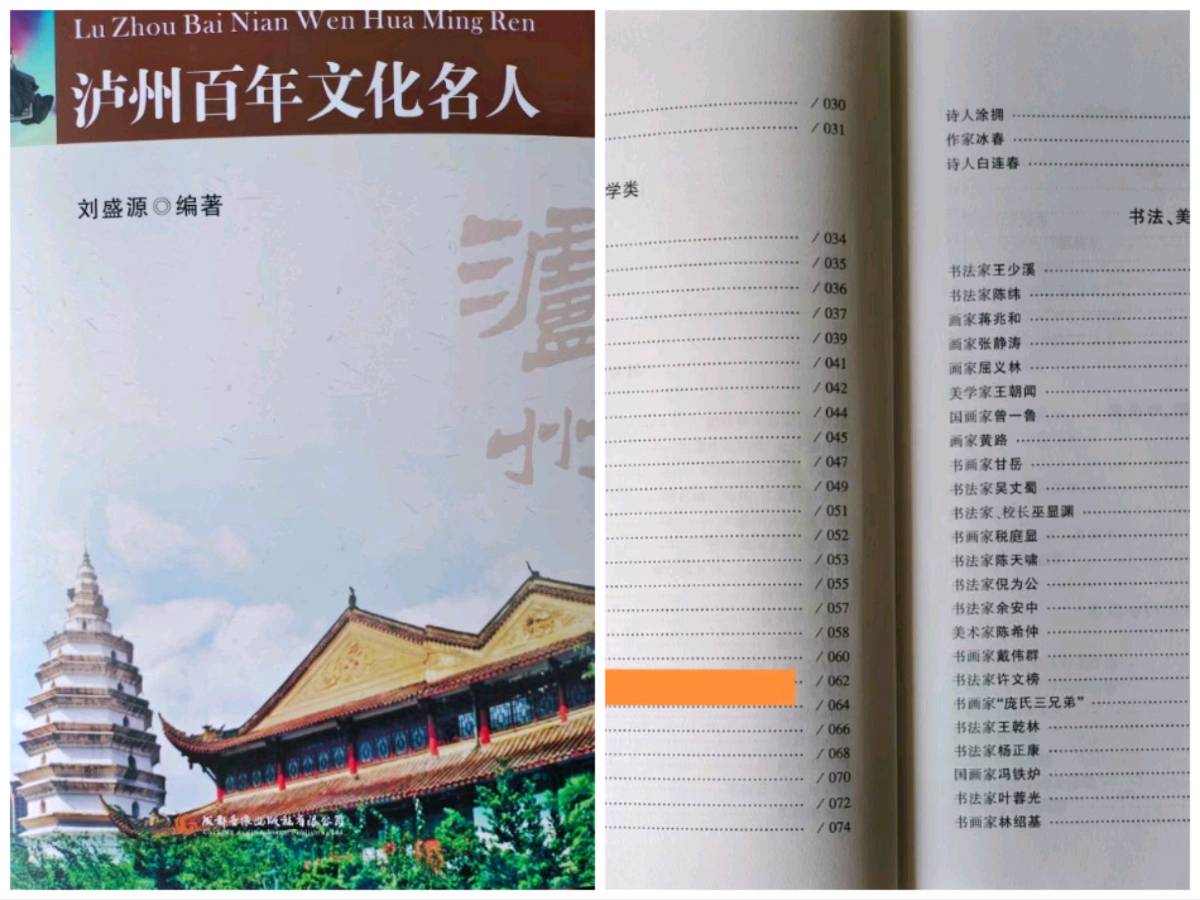 Lu Zhou Bai Nian Wen Hua Ming Ren
泸州百年文化名人
刘盛源◎编著
泸州
成都音像出版社有限公司
/ 030
/ 031
学类
/ 034
/ 035
/ 036
/ 037
/ 039
/ 041
/ 042
/ 044
/ 045
/ 047
/ 049
/ 051
/ 052
/ 053
/ 055
/ 057
/ 058
/ 060
/ 062
/ 064
/ 066
/ 068
/ 070
/ 072
/ 074
诗人涂拥
作家冰春
诗人白连春
书法、美
书法家王少溪
书法家陈纬
画家蒋兆和
画家张静涛
画家屈义林
美学家王朝闻
国画家曾一鲁
画家黄路
书画家甘岳
书法家吴丈蜀
书法家、校长巫显渊
书画家税庭显
书法家陈天啸
书法家倪为公
书法家余安中
美术家陈希仲
书画家戴伟群
书法家许文榜
书画家“庞氏三兄弟”
书法家王乾林
书法家杨正康
国画家冯铁炉
书法家叶蓉光
书画家林绍基